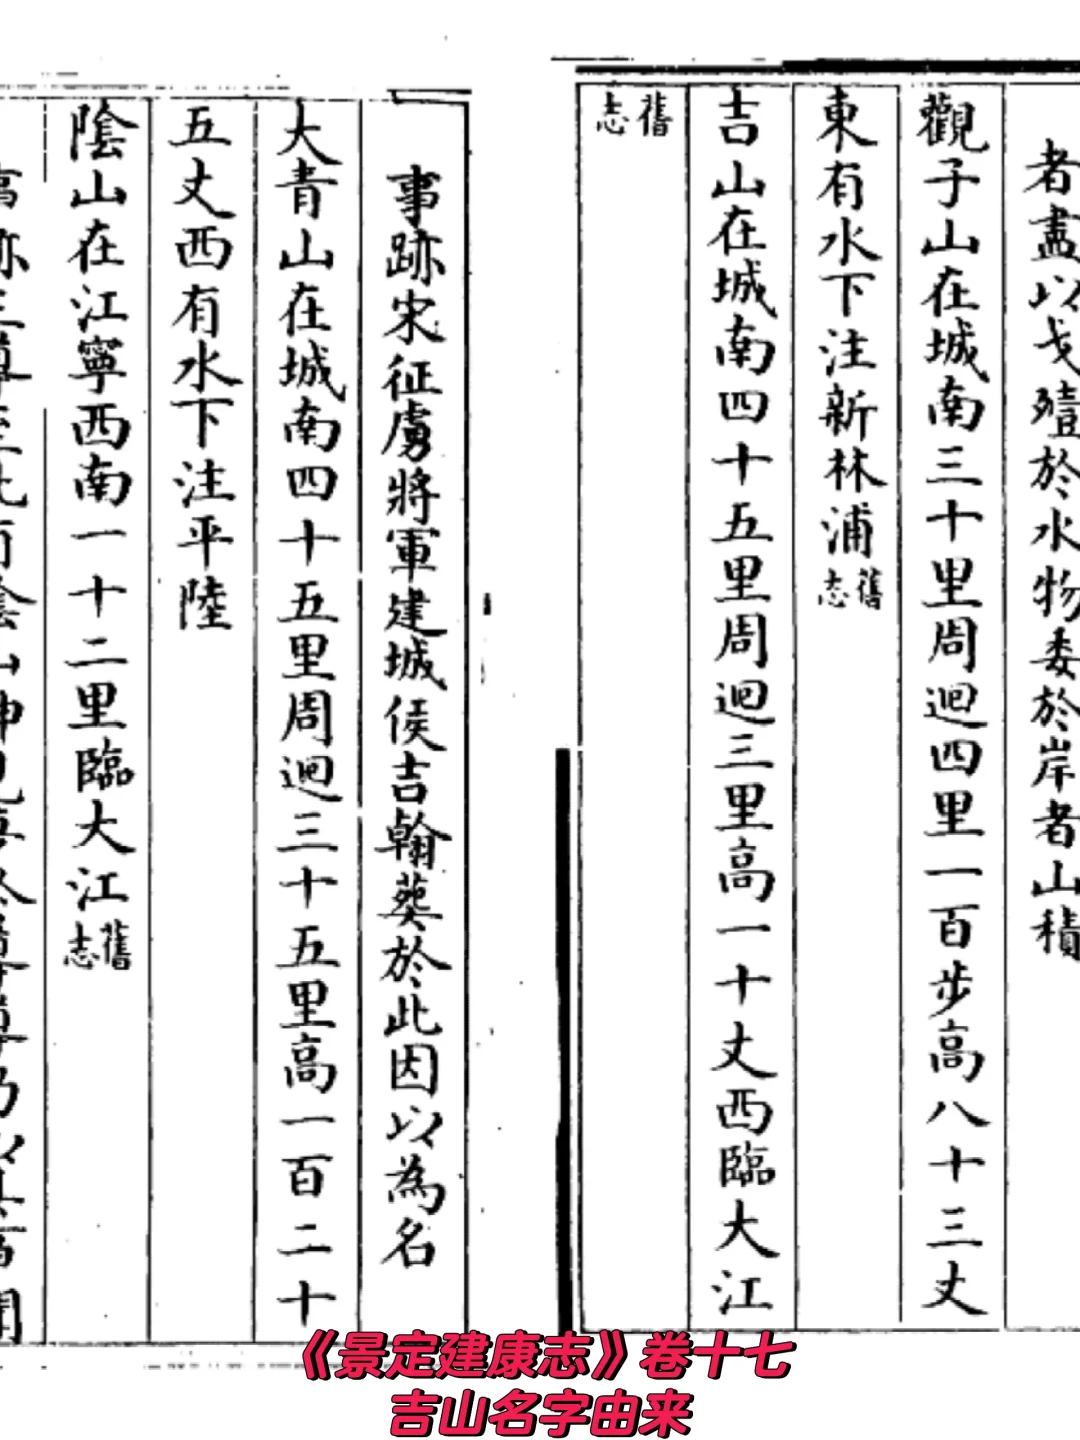 者盡以戈殪於水物委於岸者山積
觀子山在城南三十里周迴四里一百步高八十三丈
東有水下注新林浦舊志
吉山在城南四十五里周迴三里高一十丈西臨大江
舊志
事跡宋征虜將軍建城侯吉翰葬於此因以為名
大青山在城南四十五里周迴三十五里高一百二十
五丈西有水下注平陸
陰山在江寧西南一十二里臨大江舊志
《景定建康志》卷十七
吉山名字由来